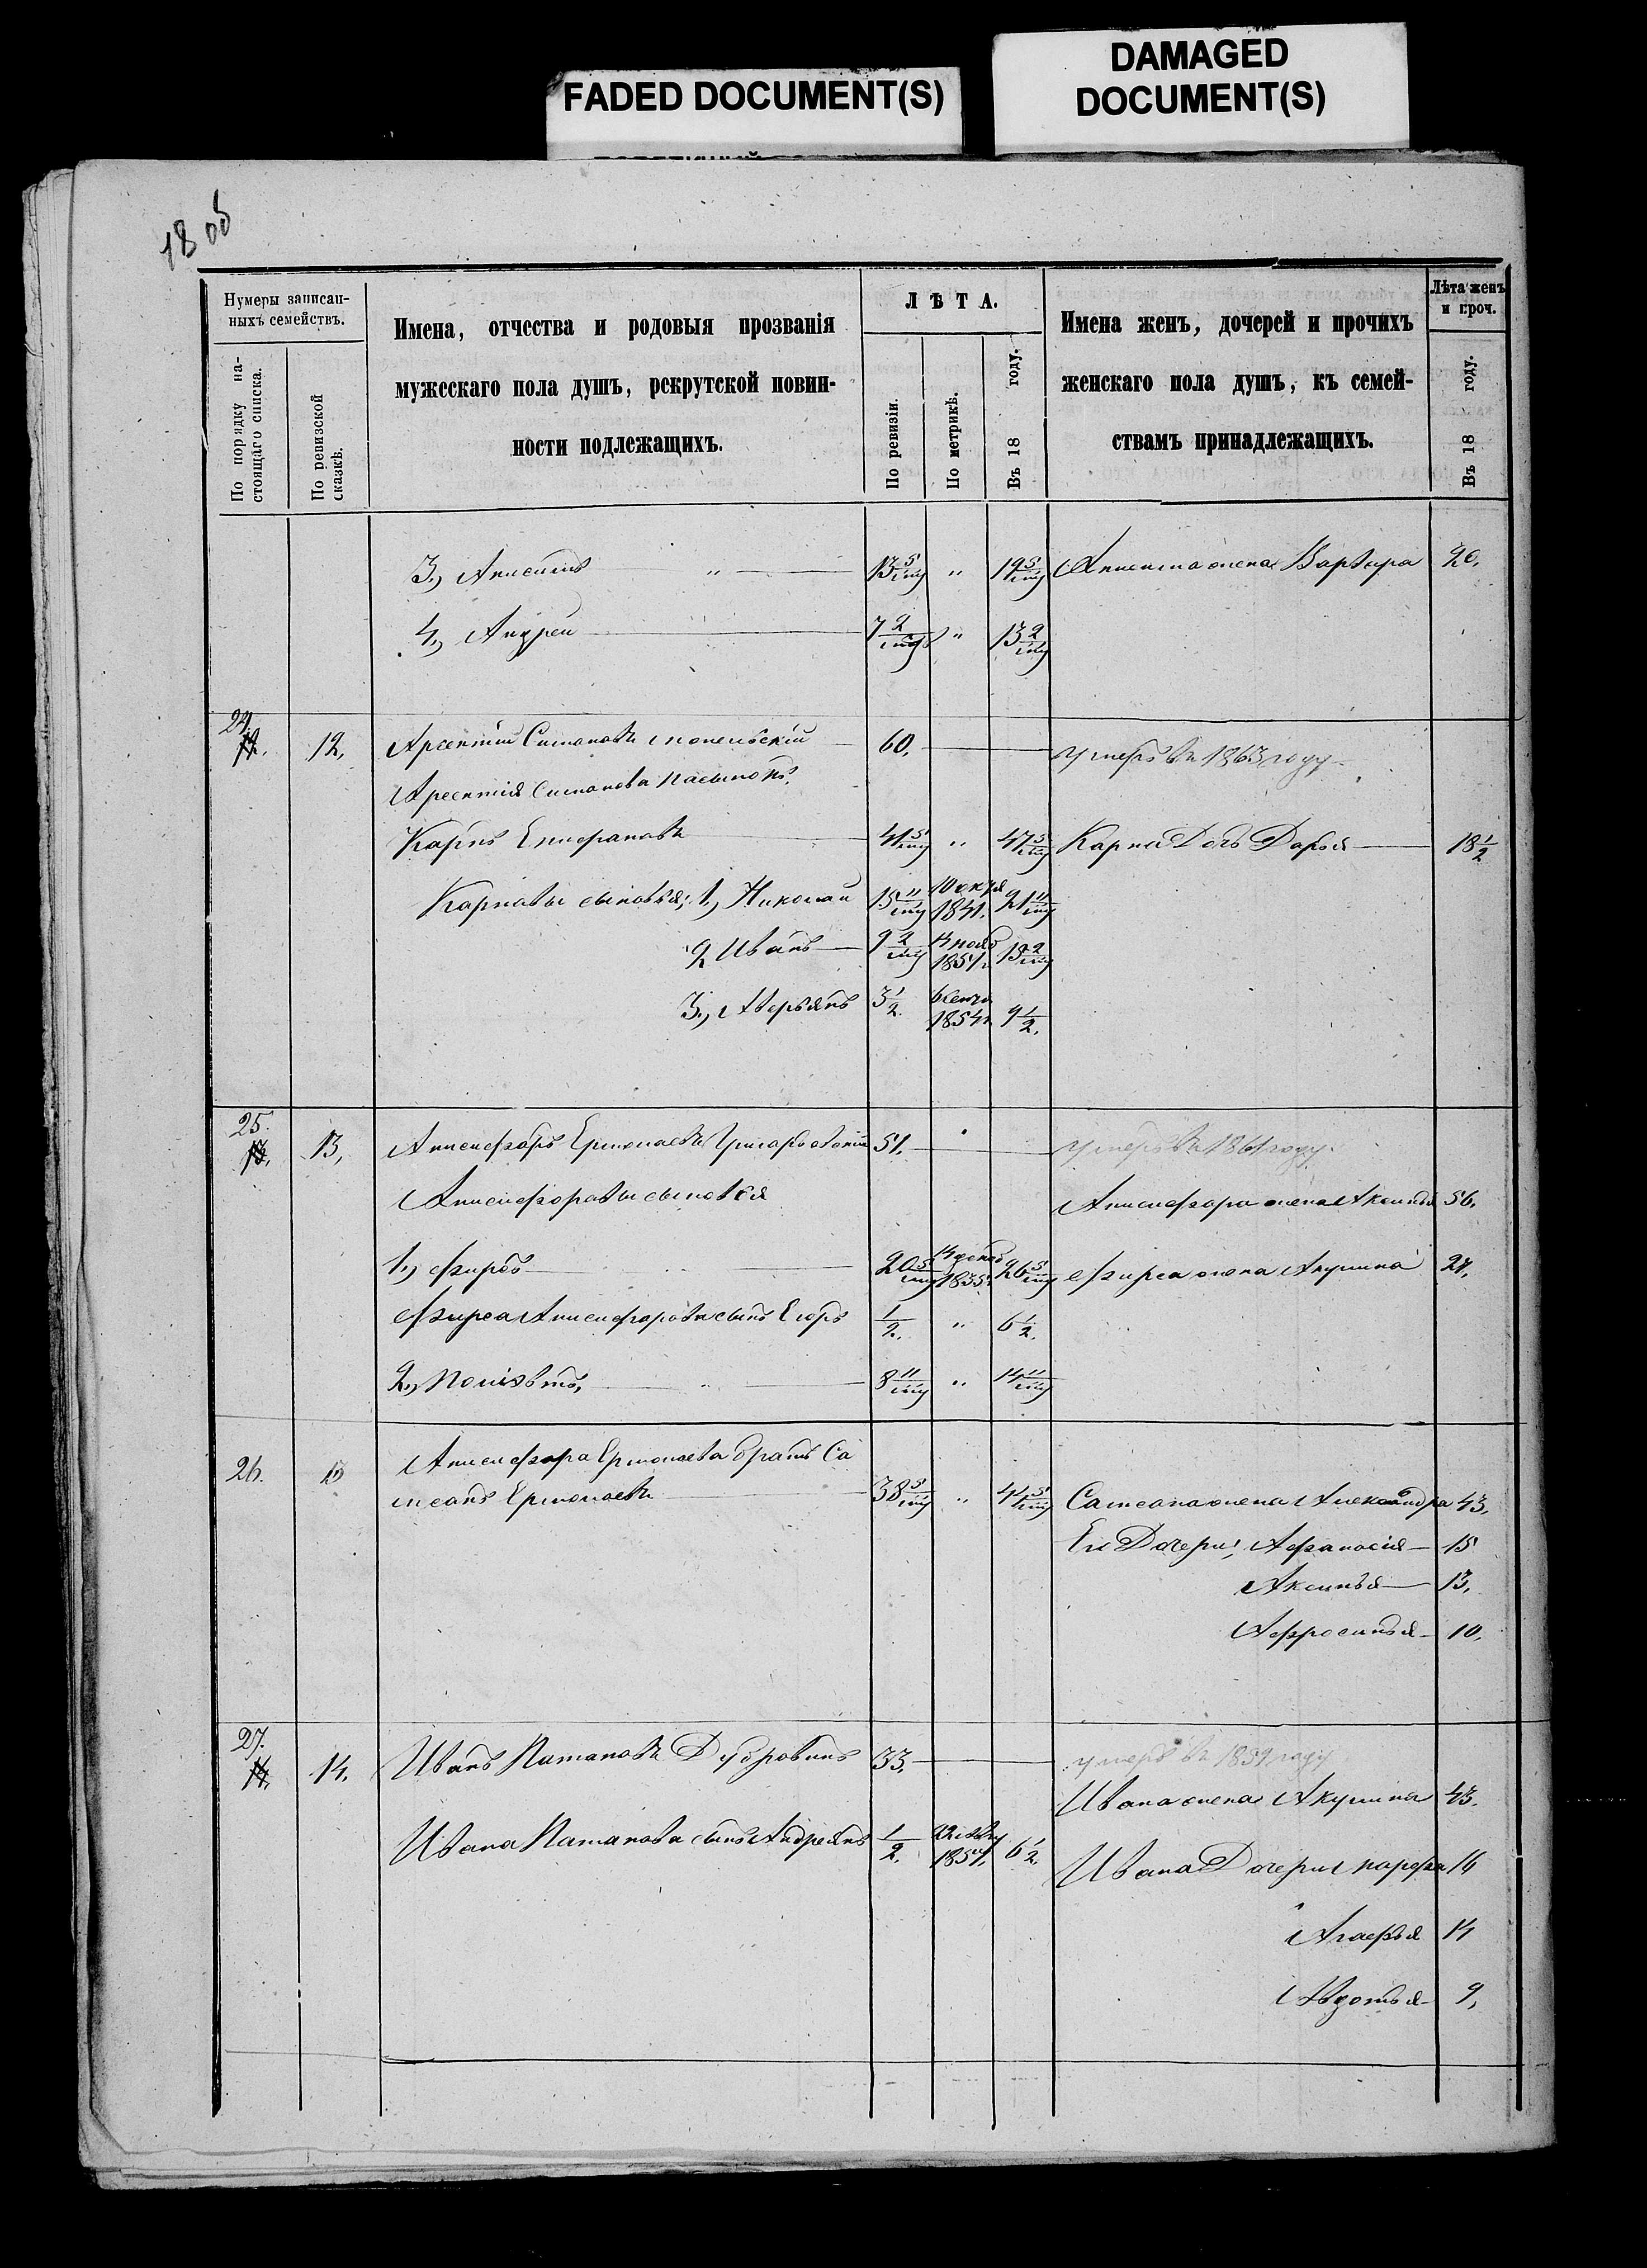 FADED DOCUMENT(S)
DAMAGED
DOCUMENT(S)
18 об
Нумеры записан-
ныхъ семействъ.
По порядку на-
стоящаго списка.
По ревизской
сказкѣ.
Имена, отчества и родовыя прозванія
мужескаго пола душъ, рекрутской повин-
ности подлежащихъ.
ЛѢТА.
По ревизіи.
По метрикѣ.
Въ 18 году.
Имена женъ, дочерей и прочихъ
женскаго пола душъ, къ семей-
ствамъ принадлежащихъ.
Лѣта женъ
и проч.
Въ 18 году.
3., Анисимъ " 13 5/ " 19 5/ Анисима жена Варвара 20.
4., Андрей 7 2/ " 13 2/
24.
12. 12, Арсентій Симановъ 60. умеръ въ 1863 году
Арсентія Симанова пасынокъ,
Карпъ Епифановъ 41 5/ " 47 5/ Карпа Дочь Дарья 18 1/2
Карповы сыновья; 1, Николай 15 11/ 10 1841. 21 11/
2 Иванъ 9 2/ 14 нояб 15 2/
3., Аверьянъ 3 1/2. 6 1854 9 1/2.
25.
13. 13, Анисифоръ Ермолаевъ 51. умеръ въ 1861 году.
Анисифоровы сыновья Анисифора жена Аксинья 56.
1., Фирсъ 20 5/ 14 декаб 1835 26 5/ Фирса жена Акулина 27.
Фирса Анисифорова сынъ Егоръ 1/2. " 6 1/2.
2., 8 11/ " 14 11/
26. Анисифора Ермолаева братъ Са
мсонъ Ермолаевъ 38 5/ " 44 5/ Самсона жена Александра 43,
Ея Дочери; Афанасія 15
Аксинья 13,
Афросинья 10.
27.
14. 14. Иванъ Патаповъ Дубровинъ 33. умеръ въ 1859 году
Ивана жена Акулина 43.
Ивана Патапова сынъ Андреянъ 1/2. 1857. 6 1/2.
Ивана Дочери 16
Агафья 14
Авдотья 9,